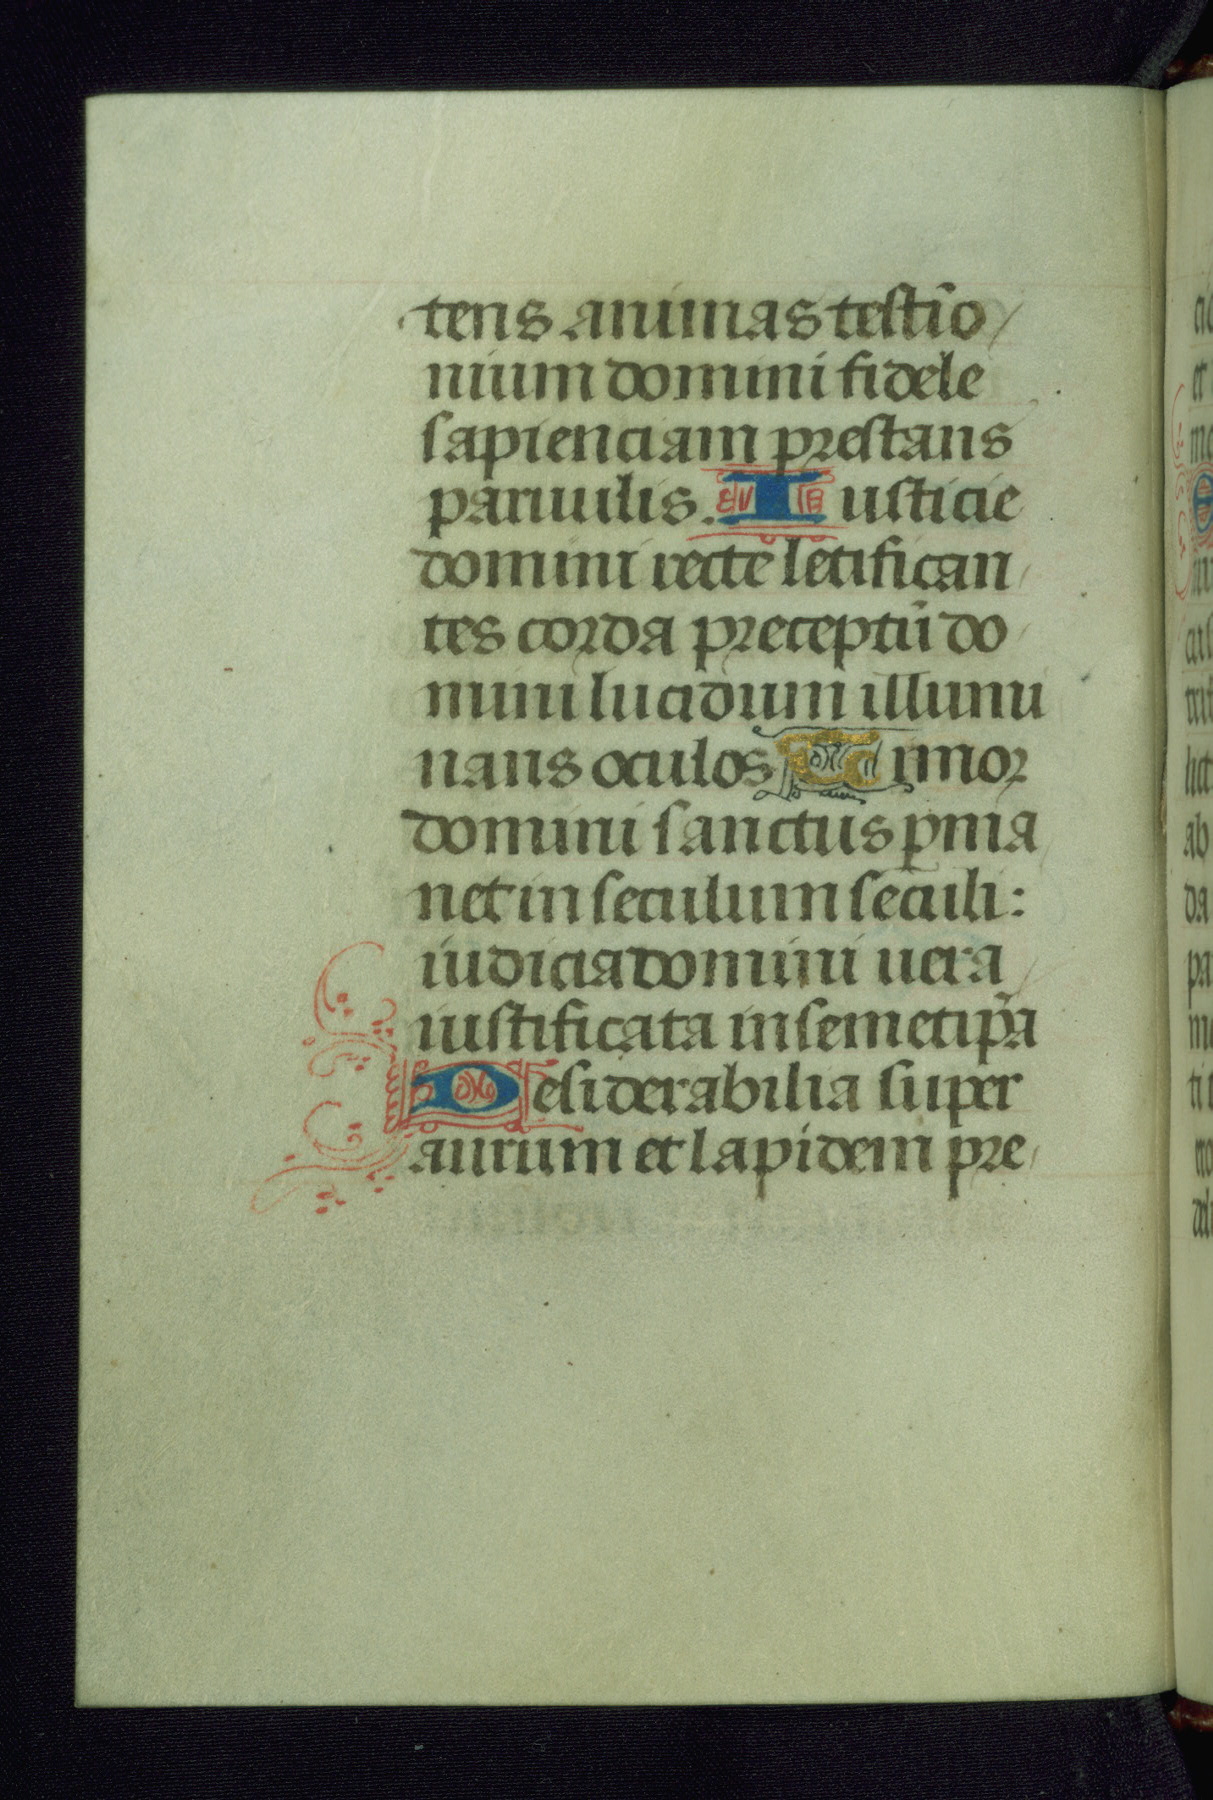 tens animas testi̅o
nium domini fidele
sapienciam prestans
paruulis. Iusticie
domini recte letifican
tes corda preceptu̅ do
mini lucidum illumi
nans oculos Timor
domini sanctus ꝑma
net in seculum seculi:
iudicia domini uera
iustificata in semetip̅a
Desiderabilia super
aurum et lapidem pre